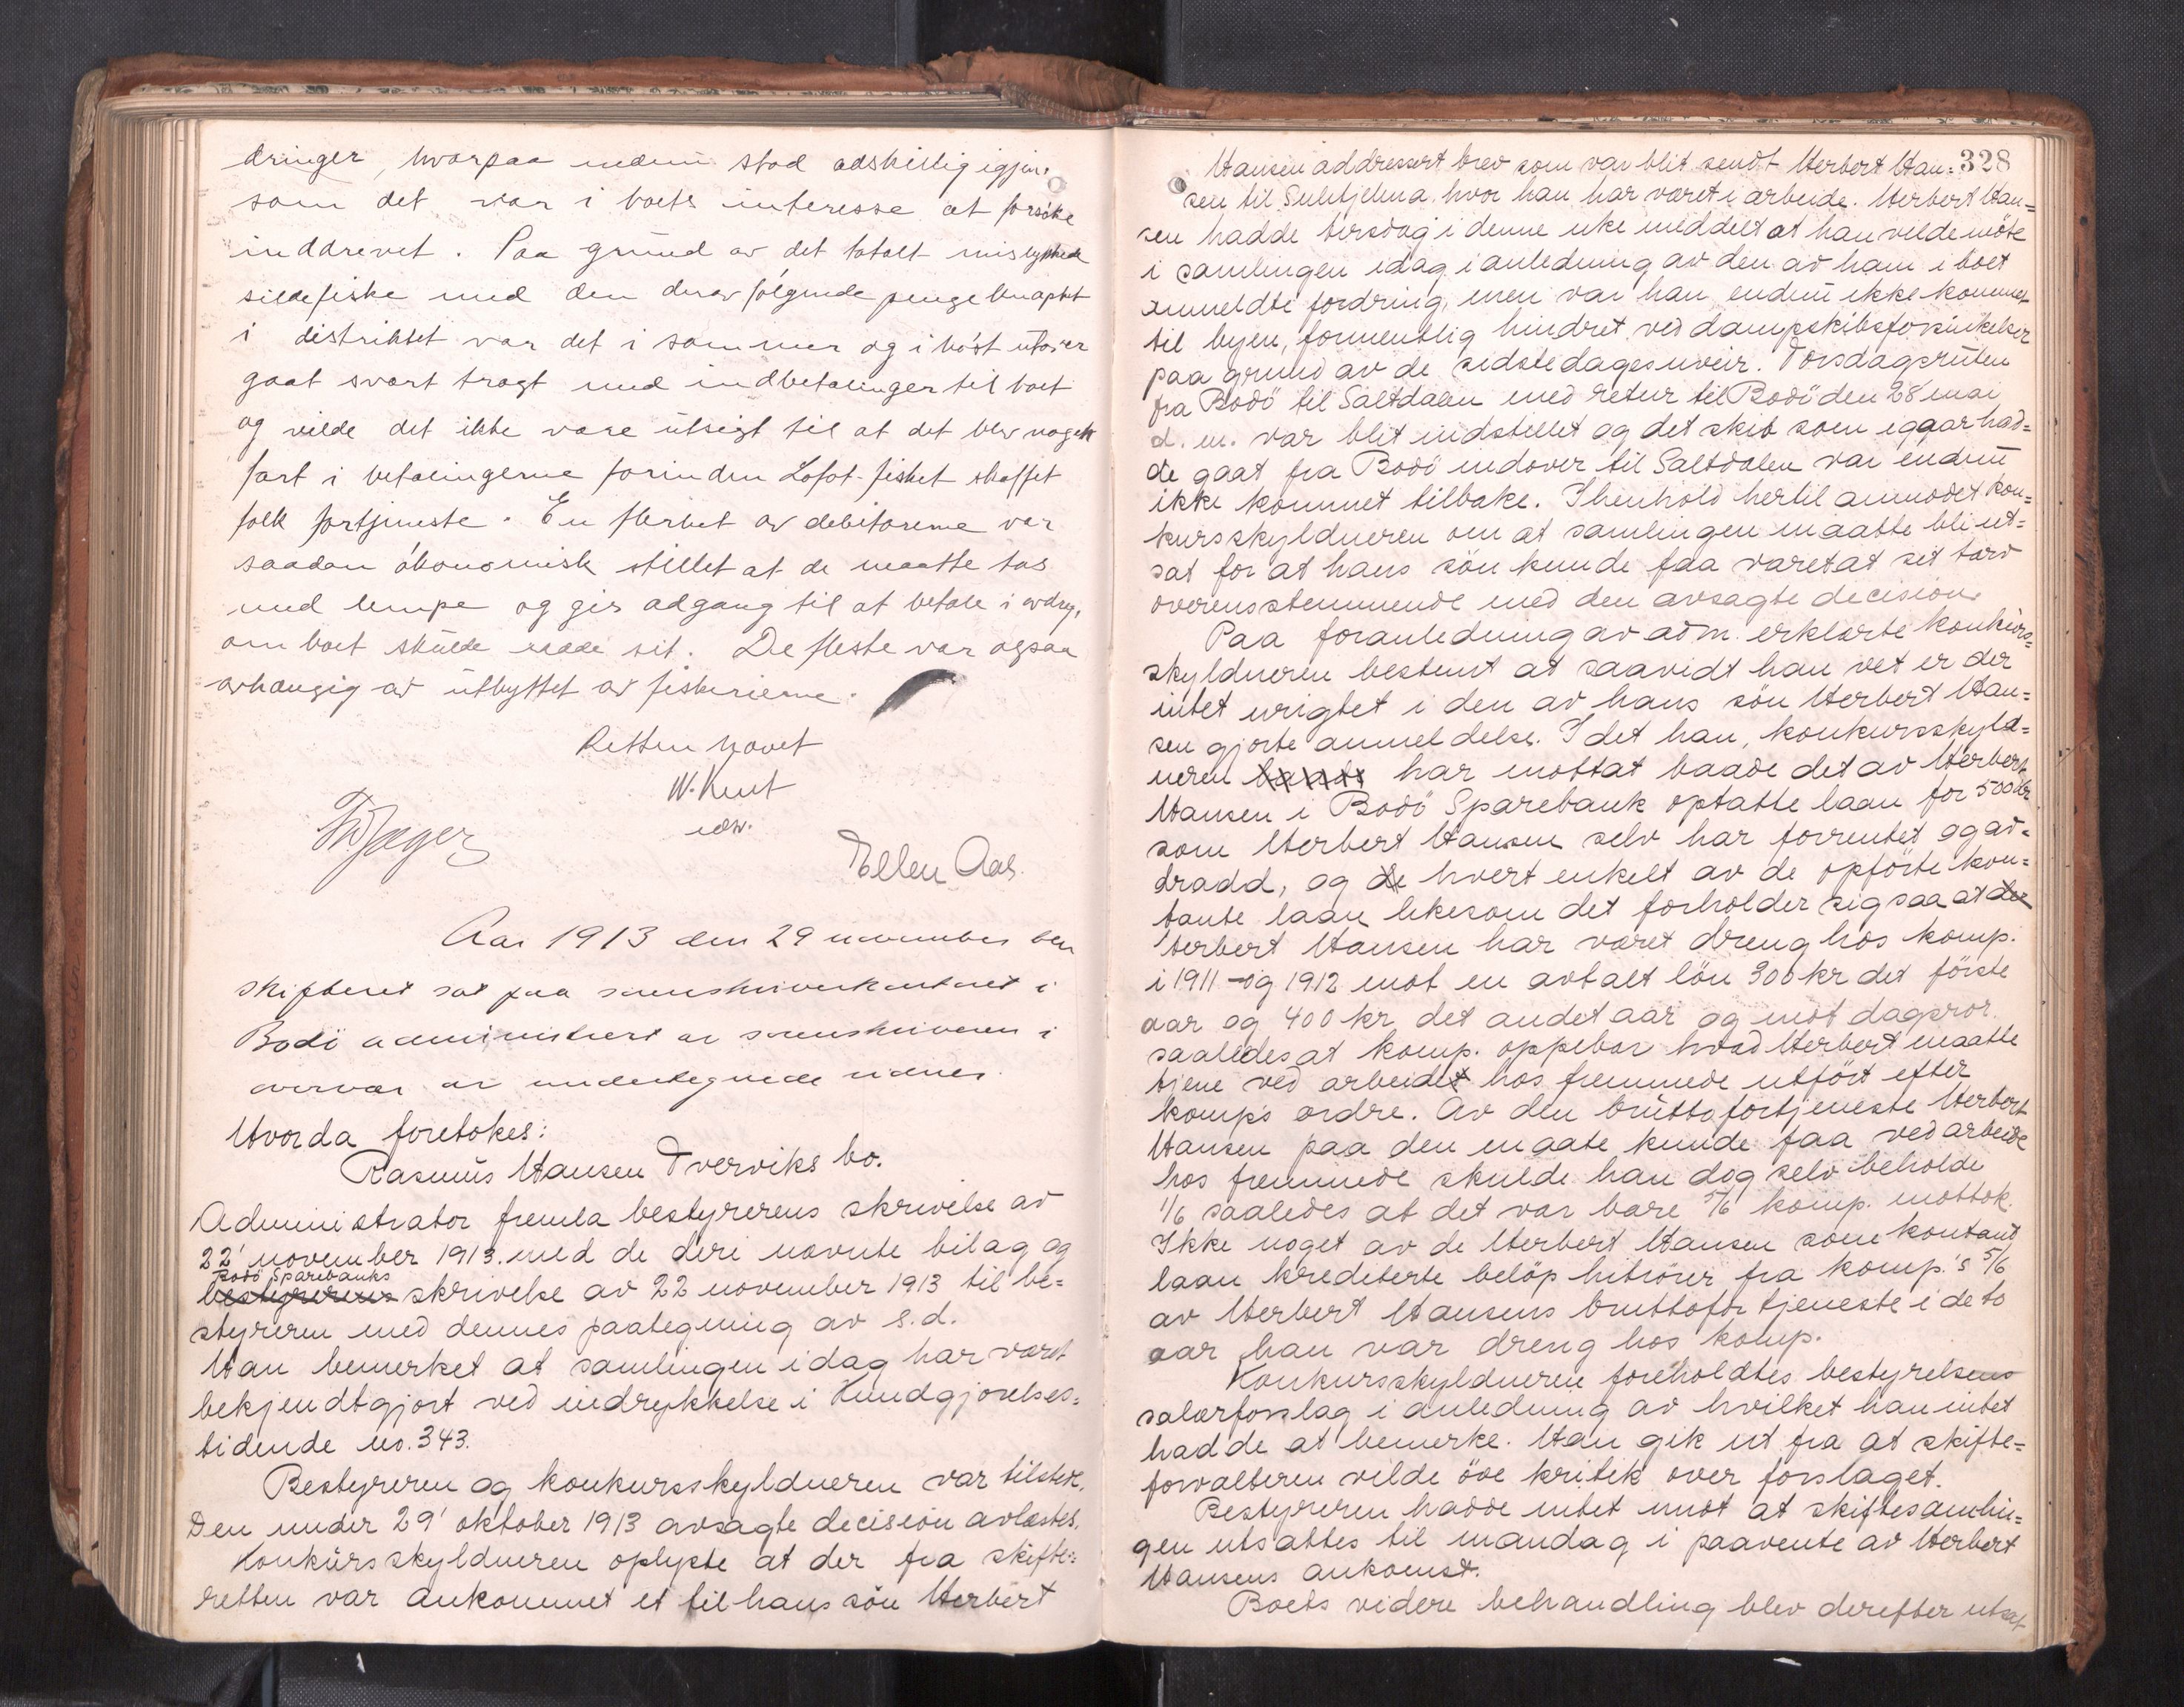 dringer, hvorpaa endnu stod adskillig igjen.
som det var i boets interesse at forsøke
inddrevet. Paa grund av det totalt mislykkede
sildefiske med den derav følgende pengeknaphet
i distriktet var det i sommer og i høst
gaat svært tragt med indbetalinger til boet
og vilde det ikke være utsigt til at det blev noget
fart i betalingerne forinden Lofot-fisket skaffet
folk fortjeneste. En flerhet av debitorerne var
saadan økonomisk stillet at de maatte tas
med lempe og gis adgang til at betale i avdrag,
om boet skulde sit. De fleste var ogsaa
avhængig av utbyttet av fiskerierne.
Retten hævet
W. Kent
edsv.
Th Jæger
Ellen Aas.
Aar 1913 den 29 november blev
skifteret sat paa sorenskriverkontoret i
Bodö administrert av sorenskriveren i
overvær av undertegnede vidner.
Hvorda foretokes:
Rasmus Hansen Tverviks bo.
Administrator fremla bestyrerens skrivelse av
22' november 1913. med de deri nævnte bilag og
Bodö Sparebanks
bestyrerens skrivelse av 22 november 1913 til be=
styreren med dennes paategning av s.d.
Han bemerket at samlingen idag har været
bekjendtgjort ved indrykkelse i Kundgjørelses=
tidende no. 343.
Bestyreren og konkursskyldneren var tilstede.
Den under 29' oktober 1913 avsagte decision avlæstes.
Konkursskyldneren oplyste at der fra skifte=
retten var ankommet et til hans sön Herbert
328
Hansen addressert brev som var blit sendt Herbert Han=
sen til Sulitjelma, hvor han har været i arbeide. Herbert Han=
sen hadde tirsdag i denne uke meddelt at han vilde möte
i samlingen idag i anledning av den av ham i boet
anmeldte fordring, men var han endnu ikke kommet
til byen, formentlig hindret ved dampskibsforsinkelser
paa grund av de sidste dages uveir. Torsdagsruten
fra Bodö til Saltdalen med retur til Bodö den 28' mai
d. m. var blit indstillet og det skib som igaar had=
de gaat fra Bodö indover til Saltdalen var endnu
ikke kommet tilbake. I henhold hertil anmodet kon=
kursskyldneren om at samlingen maatte bli ut=
sat for at hans sön kunde faa varetat sit tarv
overensstemmende med den avsagte decision.
Paa foranledning av adm. erklærte konkurs=
skyldneren bestemt at saavidt han vet er der
intet urigtet i den av hans sön Herbert Han=
sen gjorte anmeldelse. I det han, konkursskyld=
neren har mottat baade det av Herbert
Hansen i Bodö Sparebank optatte laan for 500 kr
som Herbert Hansen selv har forrentet og av=
dradd, og de hvert enkelt av de opförte kon=
tante laan likesom det forholder sig saa at der
Herbert Hansen har været dreng hos komp.
i 1911 og 1912 mot en avtalt lön 300 kr det förste
aar og 400 kr det andet aar og mot dagsror.
saaledes at komp. oppebar hvad Herbert maatte
tjene ved arbeidet hos fremmede utfört efter
komp's ordre. Av den bruttofortjeneste Herbert
Hansen paa den maate kunde faa ved arbeide
hos fremmede skulde han dog selv beholde
1/6 saaledes at det var bare 5/6 komp. mottok.
Ikke noget av de Herbert Hansen som kontant
laan krediterte belöp hitrörer fra komp.'s 5/6
av Herbert Hansens bruttofortjeneste i de to
aar han var dreng hos komp.
Konkursskyldneren foreholdtes bestyrelsens
salærforslag i anledning av hvilket han intet
hadde at bemerke. Han gik ut fra at skifte=
forvalteren vilde öve kritik over forslaget.
Bestyreren hadde intet imot at skiftesamlin=
gen utsattes til mandag i paavente av Herbert
Hansens ankomst.
Boets videre behandling blev derefter utsat